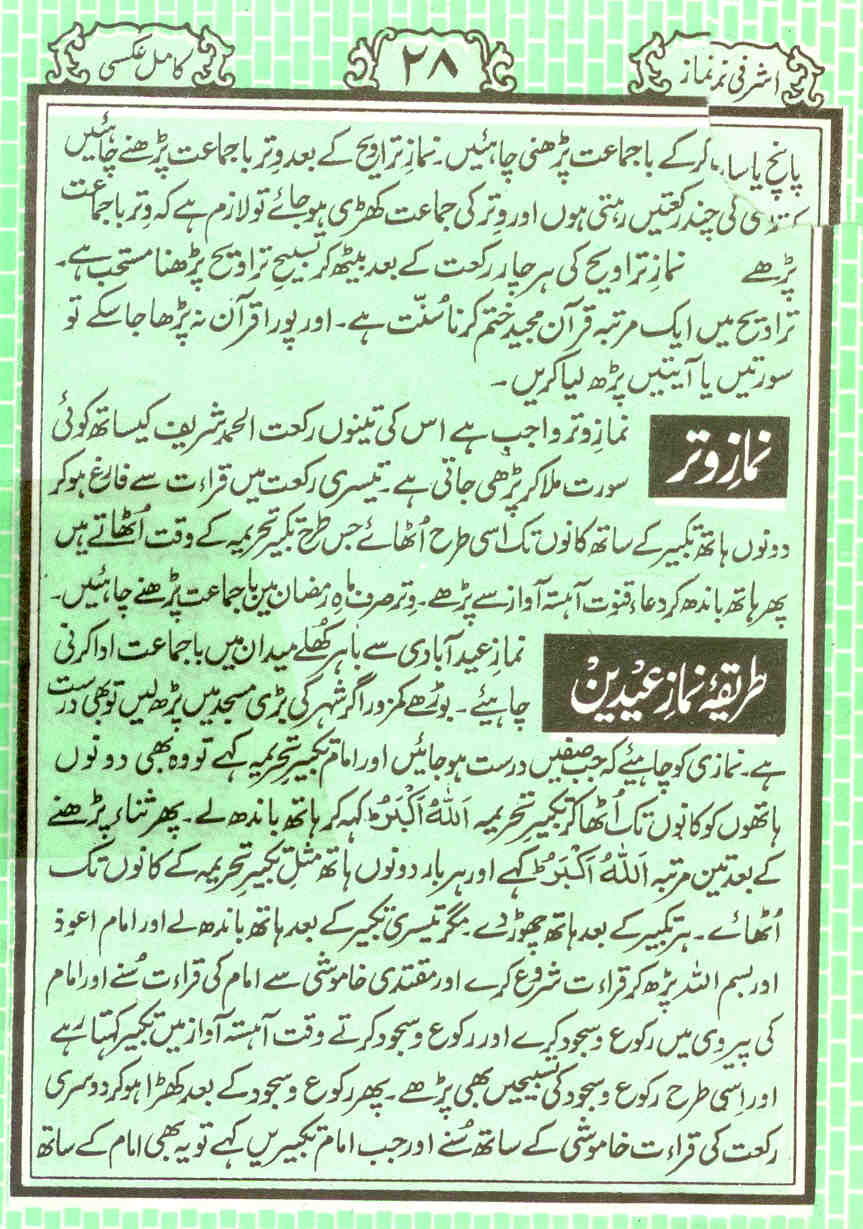 اشرفی نماز
۲۸
کامل عکسی
پانچ یا سا کر کے باجماعت پڑھنی چاہئیں۔ نمازِ تراویح کے بعد وتر باجماعت پڑھنے چاہئیں
کی چند رکعتیں رہتی ہوں اور وتر کی جماعت کھڑی ہو جائے تو لازم ہے کہ وتر باجماعت
پڑھے نمازِ تراویح کی ہر چار رکعت کے بعد بیٹھ کر تسبیحِ تراویح پڑھنا مستحب ہے۔
تراویح میں ایک مرتبہ قرآن مجید ختم کرنا سُنّت ہے۔ اور پورا قرآن نہ پڑھا جا سکے تو
سورتیں یا آیتیں پڑھ لیا کریں۔
نمازِ وتر
نمازِ وتر واجب ہے اس کی تینوں رکعت الحمد شریف کیساتھ کوئی
سورت ملا کر پڑھی جاتی ہے۔ تیسری رکعت میں قراءت سے فارغ ہو کر
دونوں ہاتھ تکبیر کے ساتھ کانوں تک اسی طرح اُٹھائے جس طرح تکبیرِ تحریمہ کے وقت اُٹھاتے ہیں
پھر ہاتھ باندھ کر دعاء قنوت آہستہ آواز سے پڑھے۔ وتر صرف ماہِ رمضان میں باجماعت پڑھنے چاہئیں۔
طریقۂ نمازِ عیدین
نمازِ عید آبادی سے باہر کھُلے میدان میں باجماعت ادا کرنی
چاہیئے۔ بوڑھے کمزور اگر شہر کی بڑی مسجد میں پڑھ لیں تو بھی درست
ہے۔ نمازی کو چاہیئے کہ جب صفیں درست ہو جائیں اور امام تکبیرِ تحریمہ کہے تو وہ بھی دونوں
ہاتھوں کو کانوں تک اُٹھا کر تکبیرِ تحریمہ اَللّٰہُ اَکْبَرُ ط کہہ کر ہاتھ باندھ لے۔ پھر ثناء پڑھنے
کے بعد تین مرتبہ اَللّٰہُ اَکْبَرُ ط کہے اور ہر بار دونوں ہاتھ مثلِ تکبیرِ تحریمہ کے کانوں تک
اُٹھائے۔ ہر تکبیر کے بعد ہاتھ چھوڑ دے۔ مگر تیسری تکبیر کے بعد ہاتھ باندھ لے اور امام اعوذ
اور بسم اللہ پڑھ کر قراءت شروع کرے اور مقتدی خاموشی سے امام کی قراءت سُنے اور امام
کی پیروی میں رکوع و سجود کرے اور رکوع و سجود کرتے وقت آہستہ آواز میں تکبیر کہتا رہے
اور اِسی طرح رکوع و سجود کی تسبیحیں بھی پڑھے۔ پھر رکوع و سجود کے بعد کھڑا ہو کر دوسری
رکعت کی قراءت خاموشی کے ساتھ سُنے اور جب امام تکبیریں کہے تو یہ بھی امام کے ساتھ